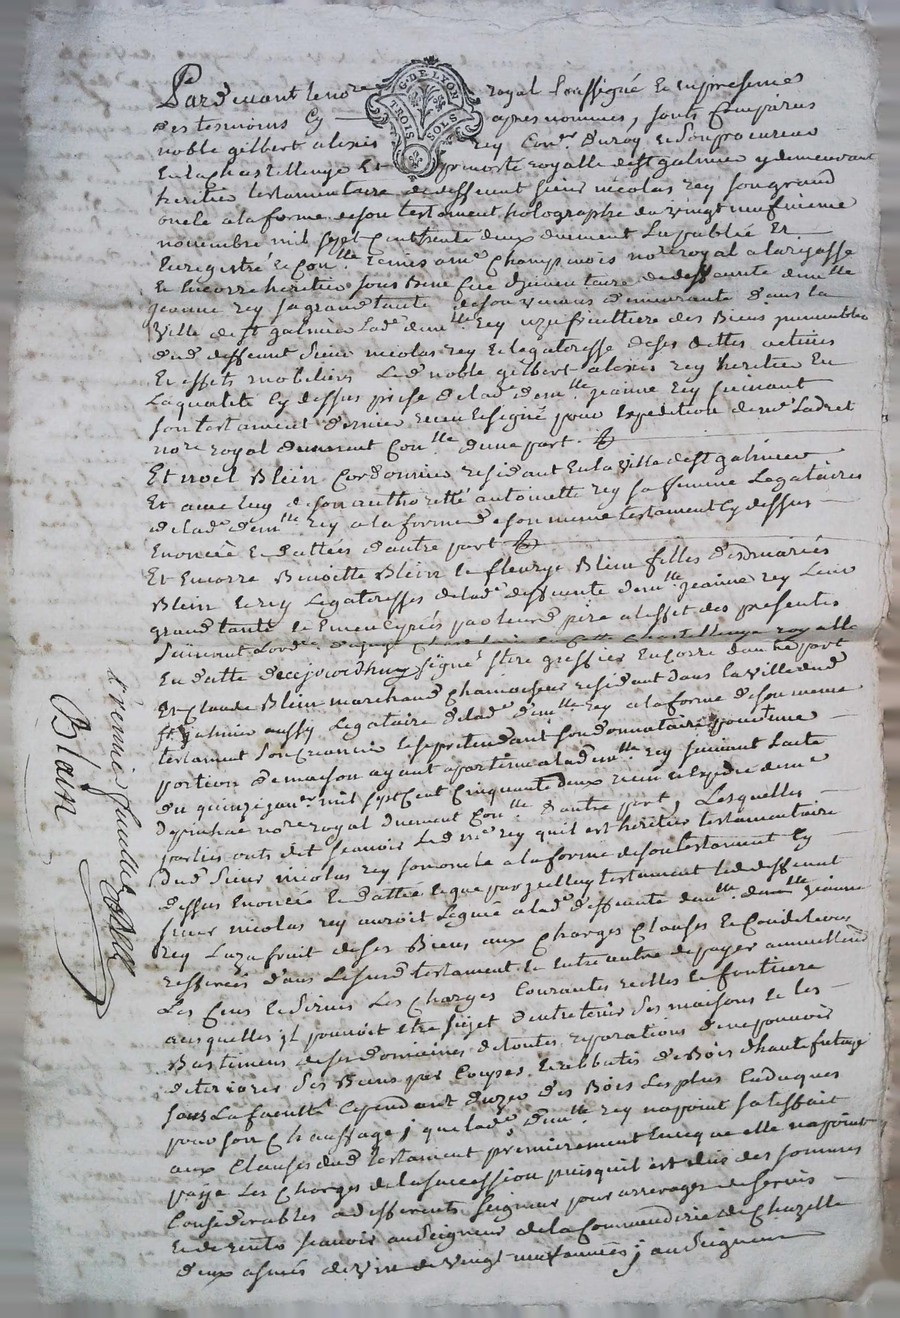 Pardevant le nore royal soussigné et en presences
G. DE LYON
TROIS SOLS
des tesmoins cy apres nommés, sont comparus
noble gilbert alexis rey Conser du roy et son procureur
En la chastellenye Et prevoté royalle de st galmier y demeurant
heritier testamentaire de deffunt sieur nicolas rey son grand
oncle a la forme de son testament holographe du vingt neufvieme
novembre mil sept cent trente deux duement publié Et
Enregistré et Conllé Me Champinois nore royal a
Et Encorre heritier sous Benefice d'jnventaire de deffunte demlle
jeanne rey sa grand tante de son vivant demeurante dans la
ville de st galmier lade demlle rey uzufruittiere des Biens jmmeubles
dud deffunt sieur nicolas rey et legateresse de ses dettes actives
Et effets mobiliers led noble gilbert alexis rey heritier En
la qualité cy dessus prise de lade demlle jeanne rey suivant
son testament dernier receu et signé pour expedition de me Ladret
nore royal duement Conllé d'une part
Et noel Blein Cordonnier residant En la ville de st galmier
Et avec luy de son authorité antoinette rey sa femme legataires
de lade demlle rey a la forme de son meme testament cy dessus
Enoncé et datté d'autre part
Et Encorre Benoitte Blein et fleurye Blein filles desd mariés
Blein et rey legateresses de lade deffunte demlle jeanne rey leur
grand tante et Emencypées par leur pere a l'effet des presentes
suivant l'orde royalle
En datte de cejourdhuy signé greffier Encorre d'autre part
Et Claude Blein marchand Chamoiseur residant dans la ville dud
st galmier aussy legataire de lade demlle rey a la forme de son meme
testament son creancier et se pretendant son donnataire pour une
portion de maison ayant apartenu a lad demlle rey suivant l'acte
du quinze janer mil sept Cent Cinquante deux receu et Expedié de me
Depinhac nore royal duement Conllé d'autre part, Lesquelles
parties ont dit sçavoir led me rey qu'il est heritier testamentaire
dud sieur nicolas rey son oncle a la forme de son testament cy
dessus Enoncé Et datté et que par jcelluy testament led deffunt
sieur nicolas rey auroit legué a lade deffunte demlle jeanne
rey l'uzufruit de ses Biens aux Charges Clauses et Conditions
resserées dans led testament et entre autre de payer annuellement
Les Cens et servis Les Charges Courantes reelles et fontiere
auxquelles jl pouvoit etre sujet d'entretenir les maisons et les
Bastimens de ses domaines de toutes reparations de ne pouvoir
deteriorer les Biens par Coupes et abbatis de Bois d'haute futaye
sous la faculté cependant d'uzer des Bois les plus Caduques
pour son Chauffage; que lade demlle rey na point satisfait
aux Clauses dud testament premierement En ce que elle na point
payé les Charges de la succession puisquil est dus des sommes
Considerables a differents seigneurs pour arrerages de servis
Et directs sçavoir au seigneur de la Commanderie de Chazelle
deux asnées de vin de vingt neuf années; au seigneur
premier feuillet
Blain